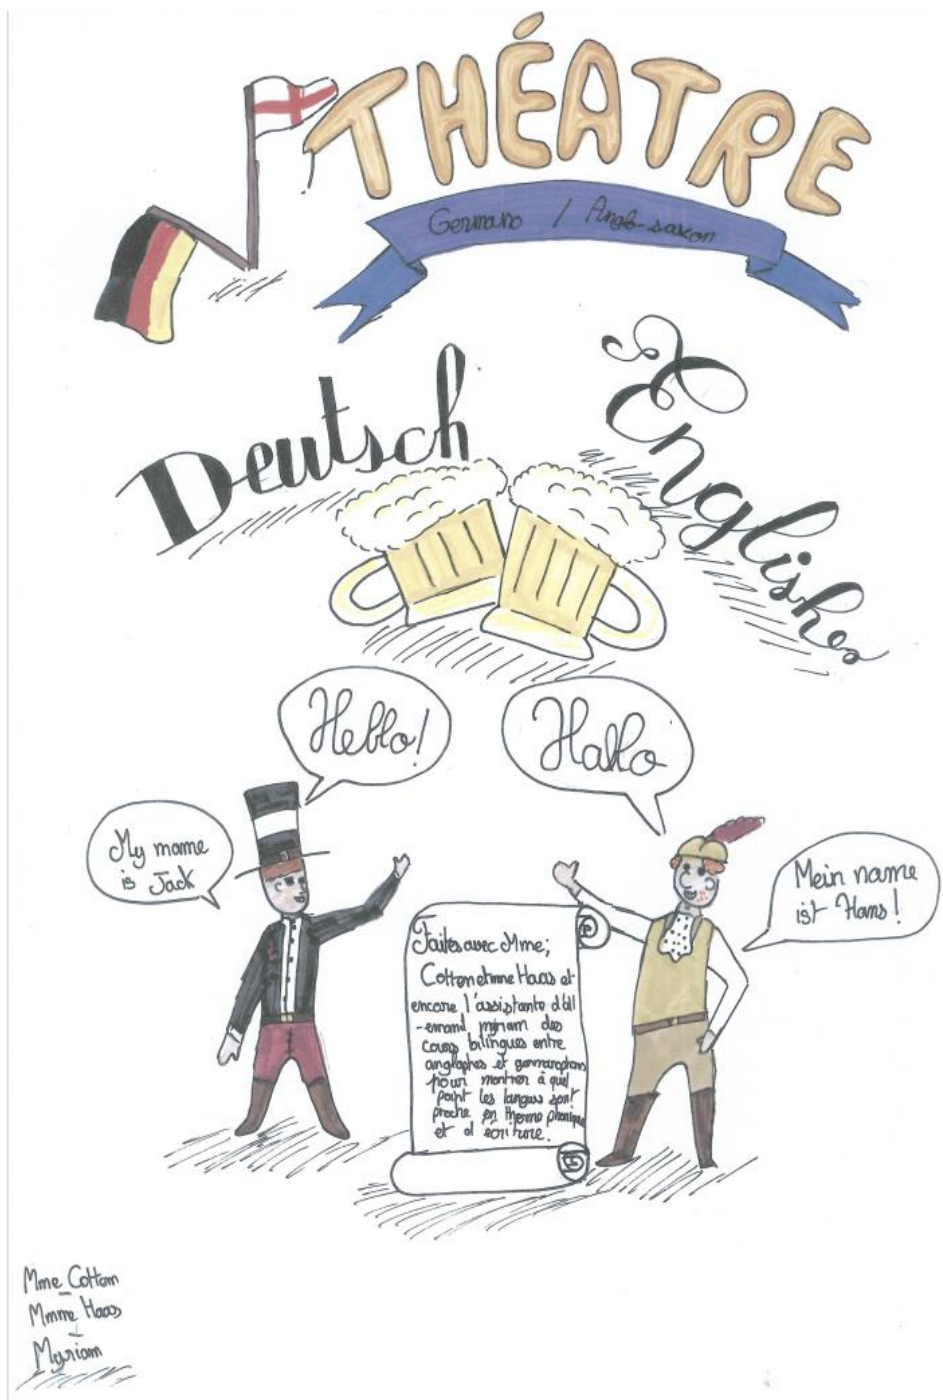 THÉATRE
Germano / Anglo-saxon
Deutsch
English
Hello!
Hallo
My name
is Jack
Mein name
ist Hans!
Faites avec Mme;
Cotton et mme Haas et
encore l'assistante d'all
-emand myriam des
cours bilingues entre
anglophes et germanophons
pour montrer à quel
point les langues sont
proche en therme phonique
et d'écriture.
Mme Cotton
-
Mmme Haas
-
Myriam